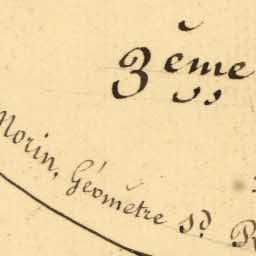 3ème
Morin, Géomètre sᵈ.